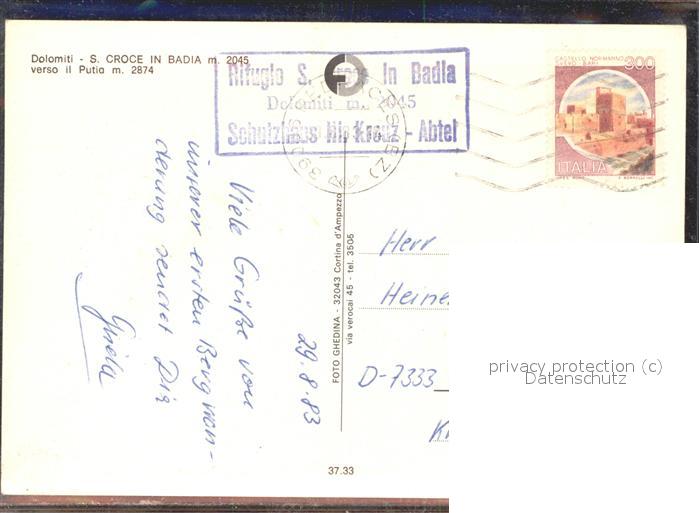 Dolomiti - S. CROCE IN BADIA m. 2045
verso il Putia m. 2874
Rifugio S. Croce in Badia
Dolomiti m. 2045
Schutzhaus Hl. Kreuz - Abtei
CASTELLO NORMANNO
SVEVO BARI
300
ITALIA
Viele Grüße von
unserer ersten Bergwan-
derung sendet Dir
Gisela
29.8.83
FOTO GHEDINA - 32043 Cortina d'Ampezzo
via verocai 45 - tel. 3505
Herr
Heine
D-7333
37.33
privacy protection (c)
Datenschutz